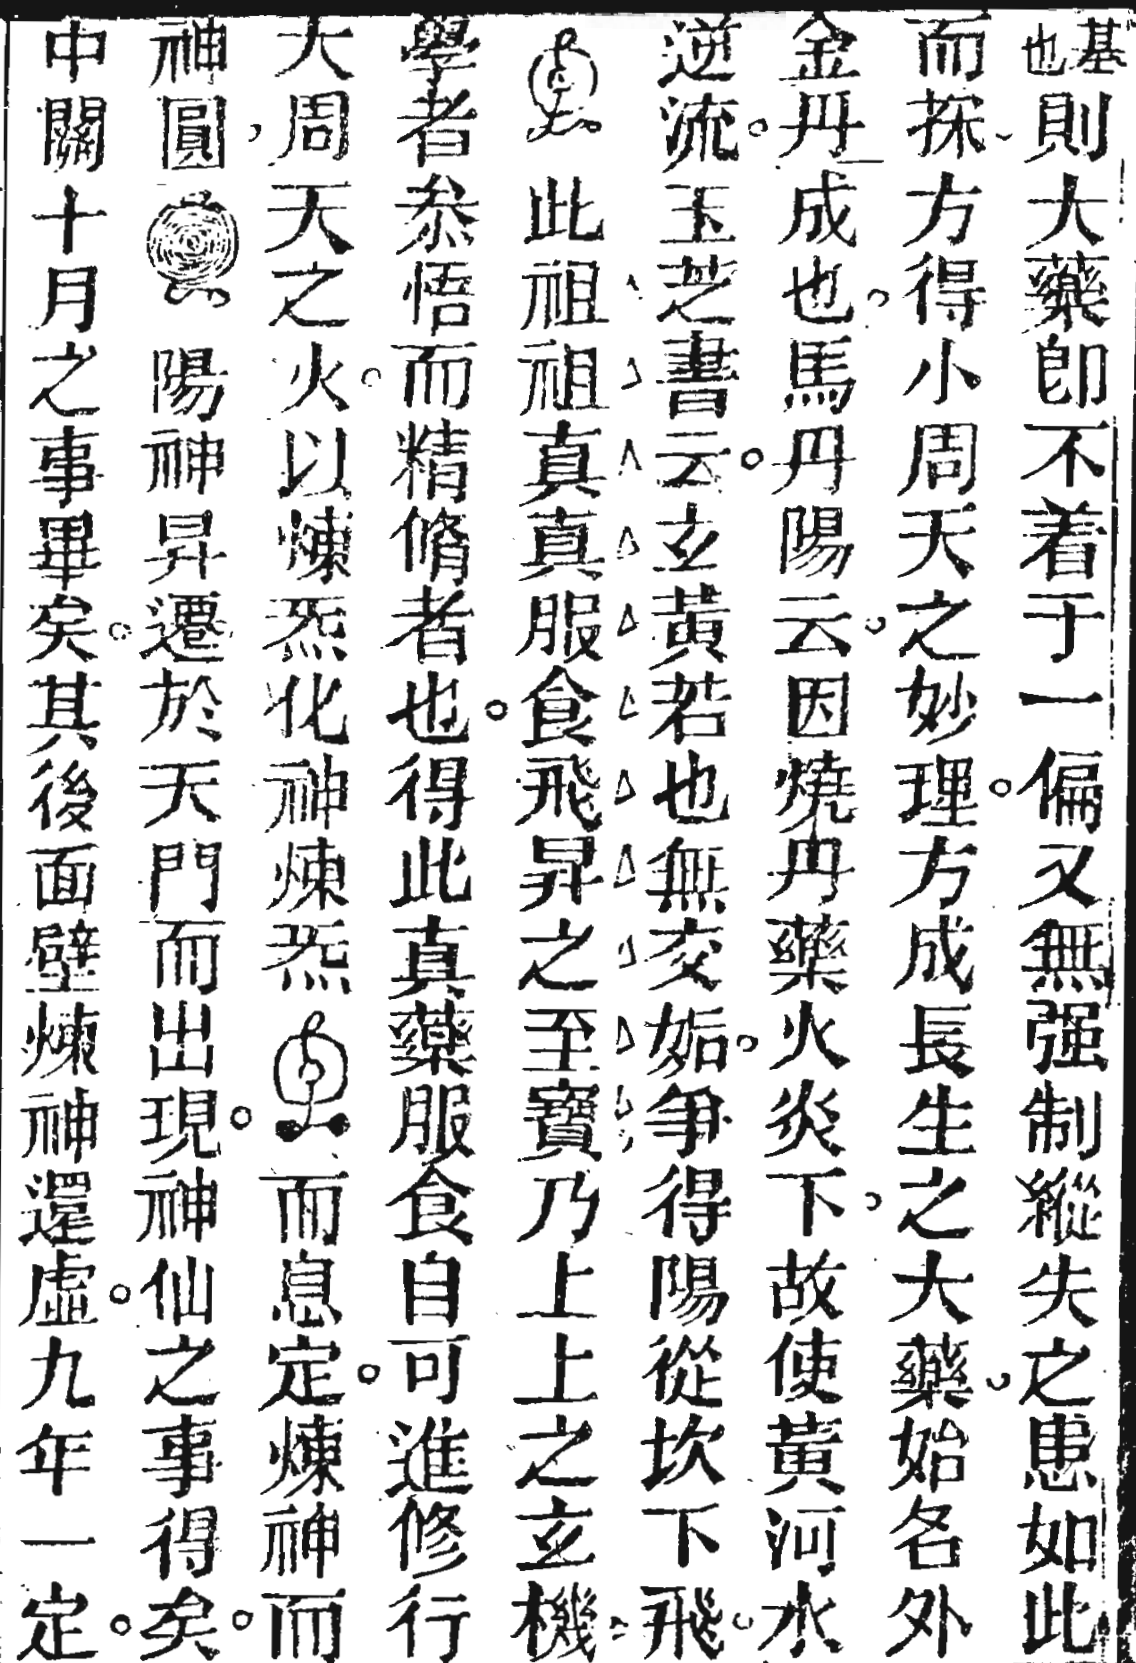 基也則大藥卽不着于一偏又無强制縱失之患如此
而採方得小周天之妙理方成長生之大藥始名外
金丹成也馬丹陽云因燒丹藥火炎下故使黃河水
逆流玉芝書云玄黃若也無交姤爭得陽從坎下飛
此祖祖真真服食飛昇之至寶乃上上之玄機
學者叅悟而精脩者也得此真藥服食自可進修行
大周天之火以煉炁化神煉炁而息定煉神而
神圓陽神昇遷於天門而出現神仙之事得矣
中關十月之事畢矣其後面壁煉神還虛九年一定